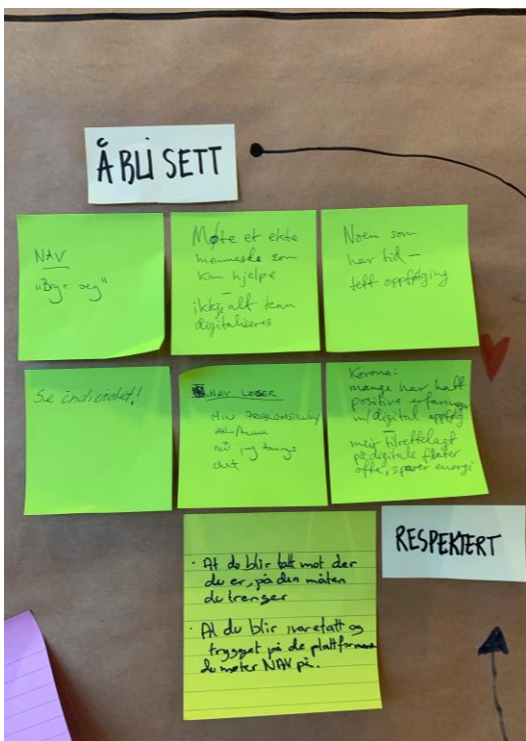 Å BLI SETT
NAV
"Bryr seg"
Møte et ekte
menneske som
kan hjelpe
–
ikkje alt kan
digitaliseres
Noen som
har tid –
tett oppfølging
Se individet!
NAV LOSER
MIN
når jeg trenger
det
Korona:
mange har hatt
positive erfaringer
m/digital oppfølg.
–
meir tilrettelagt
på digitale flater
ofte, sparer energi
RESPEKTERT
· At du blir tatt mot der
du er, på den måten
du trenger
· At du blir ivaretatt og
trygget på de plattformene
du møter NAV på.